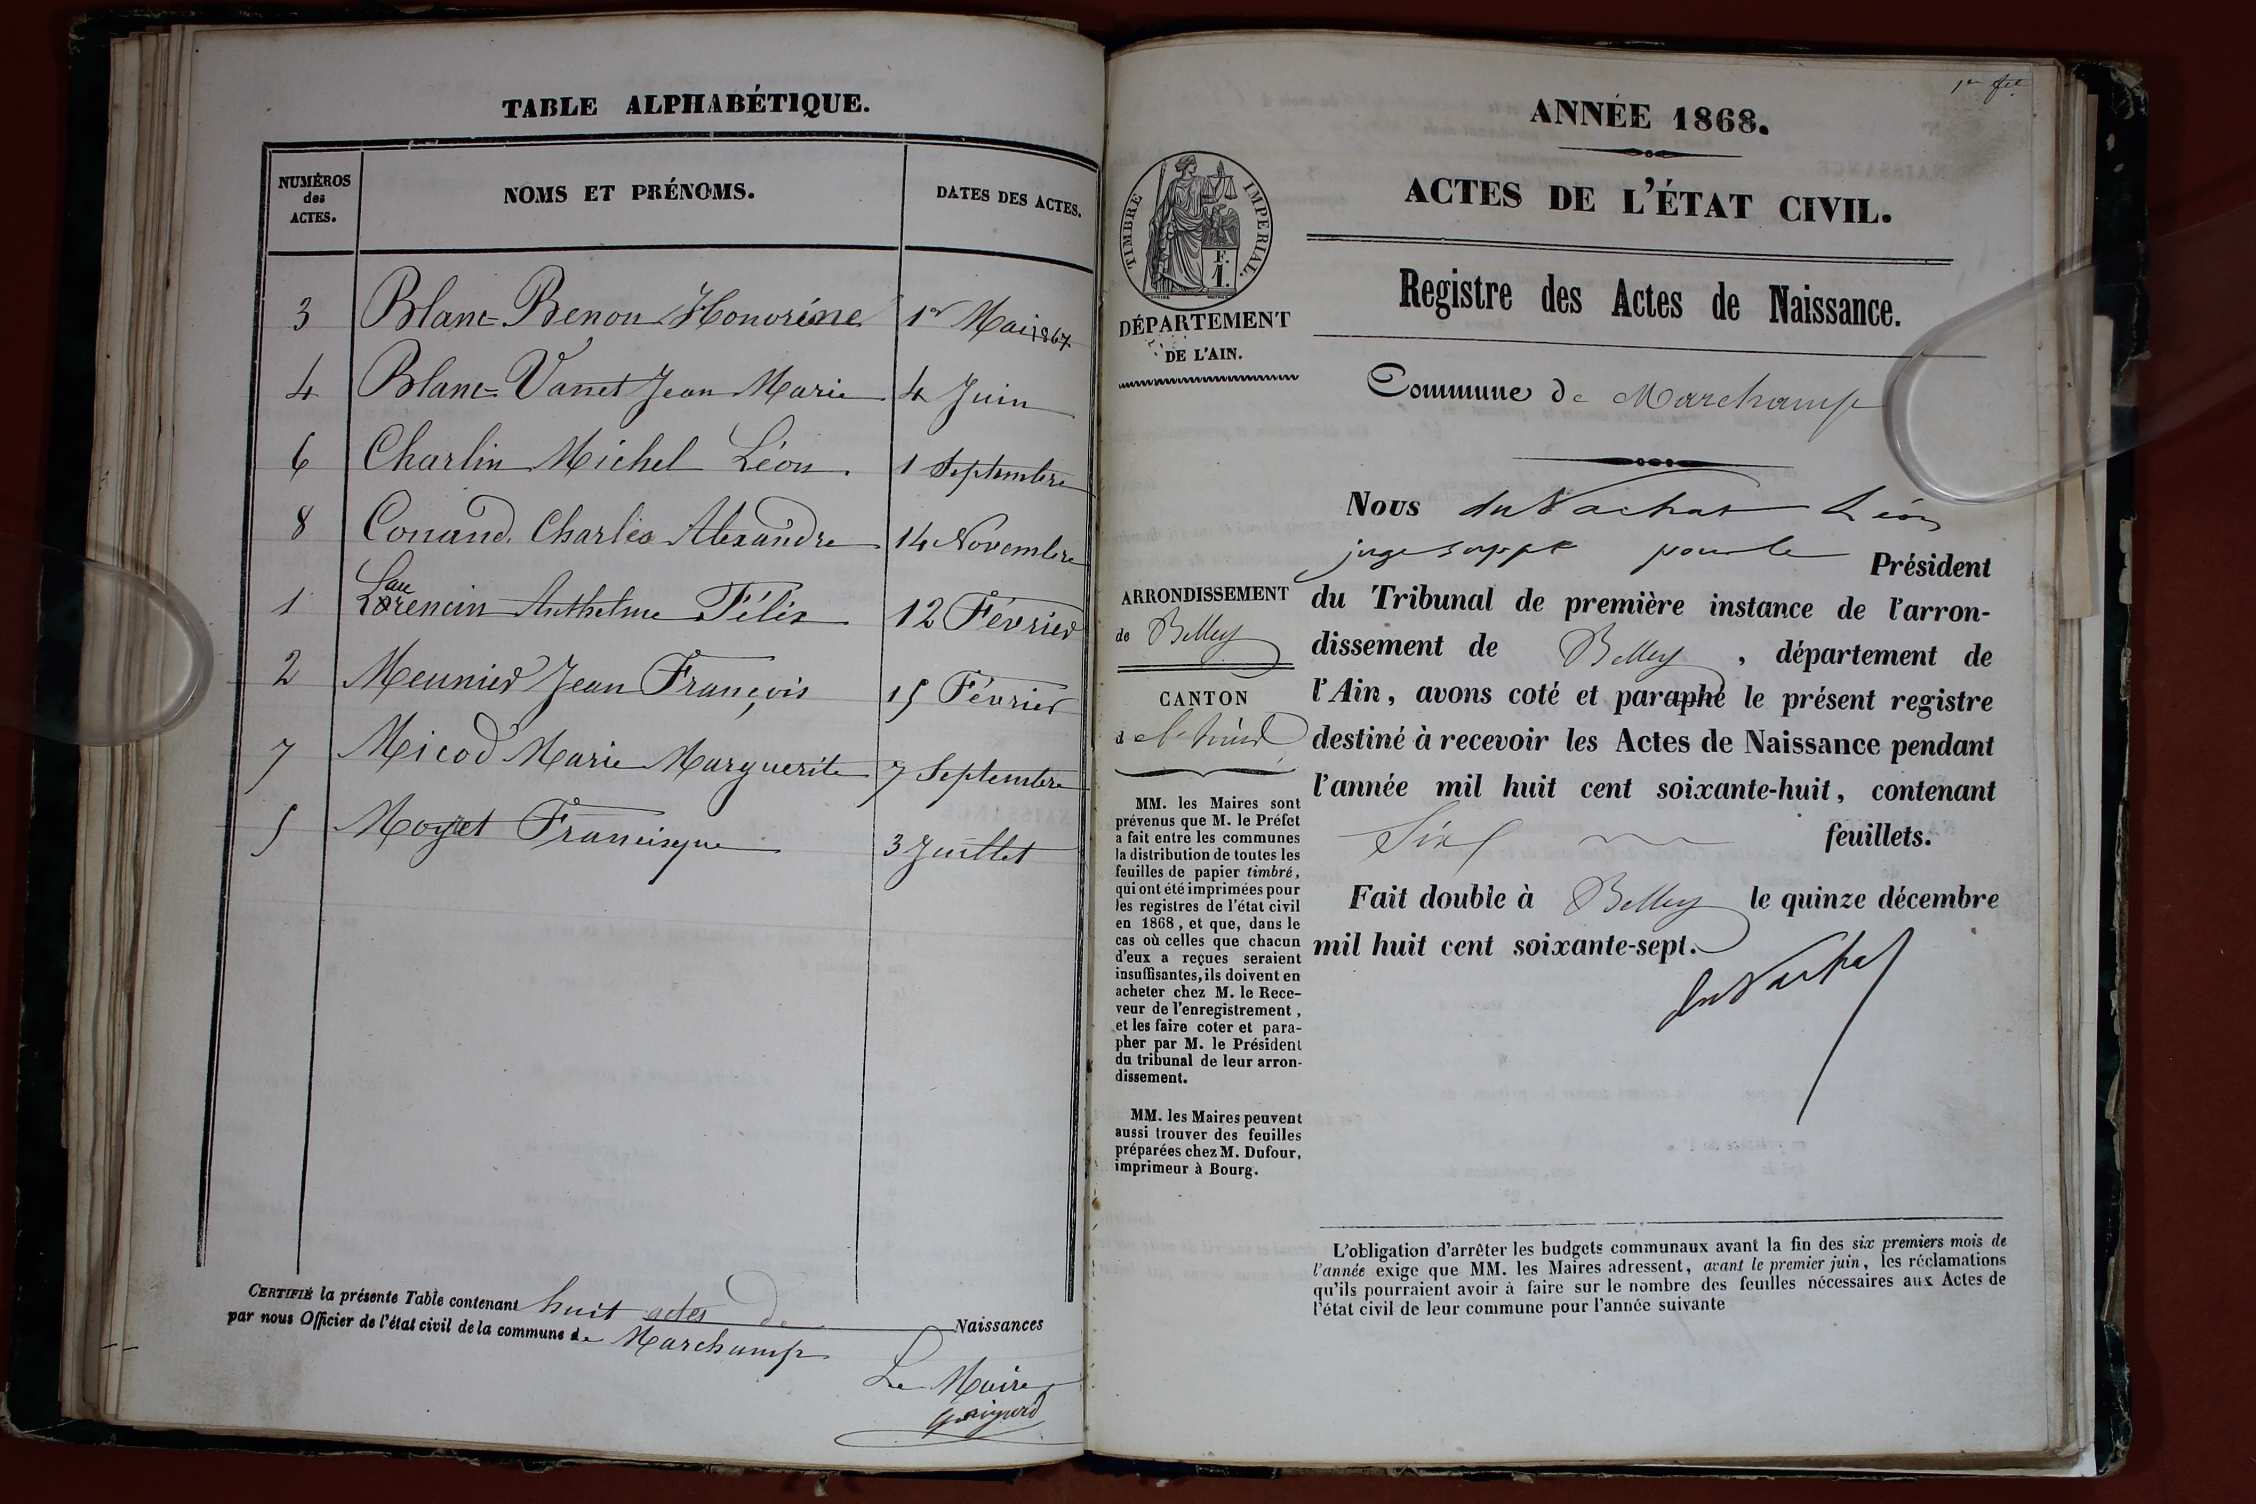 TABLE ALPHABÉTIQUE.
NUMÉROS
des
ACTES.
NOMS ET PRÉNOMS.
DATES DES ACTES.
3 Blanc Benon Honorine 1er Mai 1867
4 Blanc-Vanet Jean Marie 4 Juin
6 Charlin Michel Léon. 1 Septembre
8 Conand Charles Alexandre 14 Novembre
au
1 Lorencin Anthelme Félix 12 Février
2 Meunier Jean François 15 Février
7 Micod Marie Marguerite 7 Septembre
5 Moyret Francisque 3 Juillet
CERTIFIÉ la présente Table contenant huit actes de Naissances
par nous Officier de l'état civil de la commune de Marchamp
Le Maire
1er fet
ANNÉE 1868.
ACTES DE L'ÉTAT CIVIL.
TIMBRE IMPERIAL.
F.
1.
DÉPARTEMENT
DE L'AIN.
Registre des Actes de Naissance.
Commune de Marchamp
ARRONDISSEMENT
de Belley
CANTON
d
MM. les Maires sont
prévenus que M. le Préfet
a fait entre les communes
la distribution de toutes les
feuilles de papier timbré,
qui ont été imprimées pour
les registres de l'état civil
en 1868, et que, dans le
cas où celles que chacun
d'eux a reçues seraient
insuffisantes, ils doivent en
acheter chez M. le Rece-
veur de l'enregistrement,
et les faire coter et para-
pher par M. le Président
du tribunal de leur arron-
dissement.
MM. les Maires peuvent
aussi trouver des feuilles
préparées chez M. Dufour,
imprimeur à Bourg.
Nous du Vachat Léon
juge supp pour le Président
du Tribunal de première instance de l'arron-
dissement de Belley, département de
l'Ain, avons coté et paraphé le présent registre
destiné à recevoir les Actes de Naissance pendant
l'année mil huit cent soixante-huit, contenant
Six feuillets.
Fait double à Belley le quinze décembre
mil huit cent soixante-sept.
du Vachat
L'obligation d'arrêter les budgets communaux avant la fin des six premiers mois de
l'année exige que MM. les Maires adressent, avant le premier juin, les réclamations
qu'ils pourraient avoir à faire sur le nombre des feuilles nécessaires aux Actes de
l'état civil de leur commune pour l'année suivante